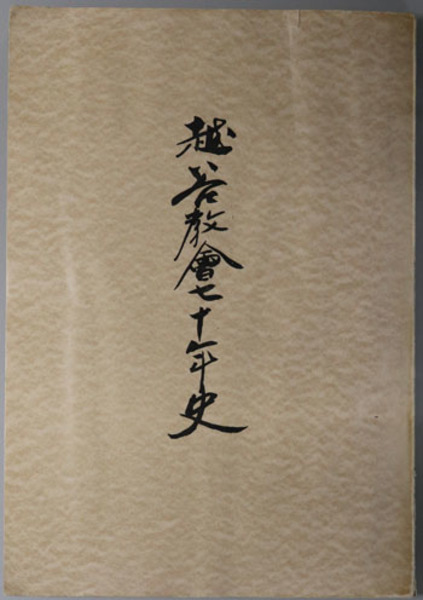 越谷教會七十年史